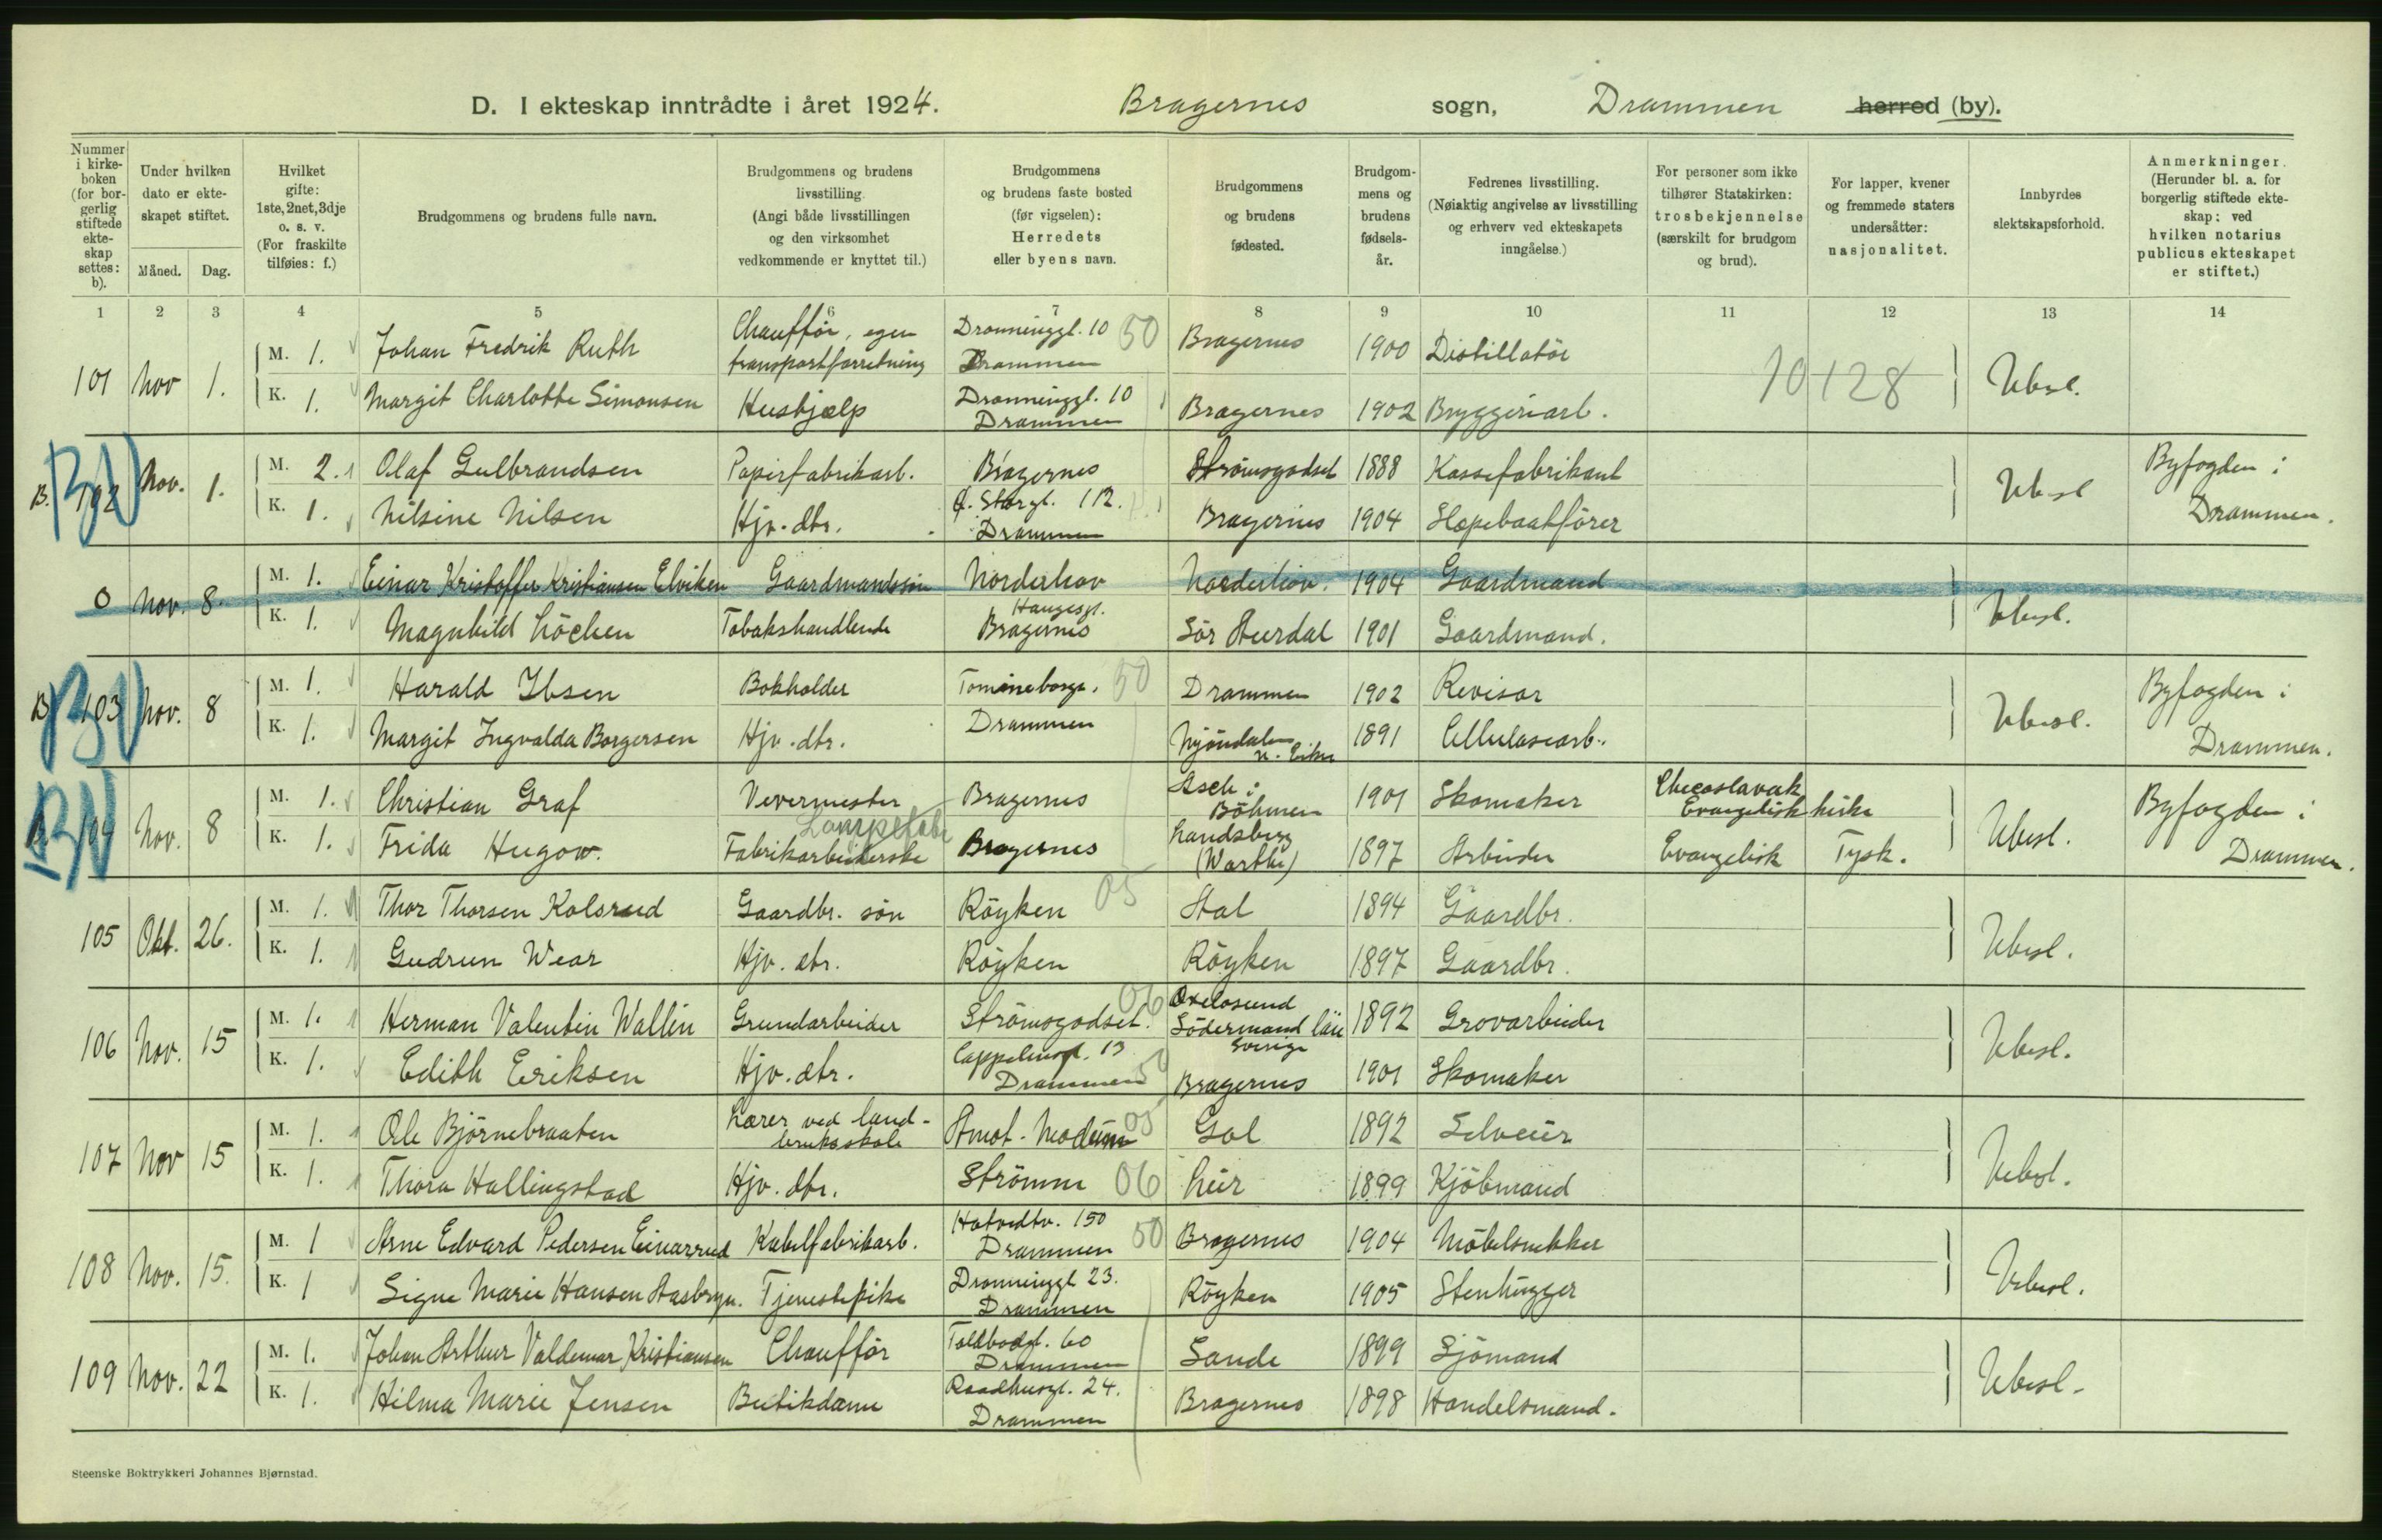 D. I ekteskap inntrådte i året 1924. Bragernes sogn, Drammen herred (by).
Nummer i kirkeboken (for borgerlig stiftede ekteskap settes: b).
Under hvilken dato er ekteskapet stiftet.
Måned. Dag.
Hvilket gifte: 1ste, 2net, 3dje o. s. v. (For fraskilte tilføies: f.)
Brudgommens og brudens fulle navn.
Brudgommens og brudens livsstilling. (Angi både livsstillingen og den virksomhet vedkommende er knyttet til.)
Brudgommens og brudens faste bosted (før vigselen): Herredets eller byens navn.
Brudgommens og brudens fødested.
Brudgommens og brudens fødselsår.
Fedrenes livsstilling. (Nøiaktig angivelse av livsstilling og erhverv ved ekteskapets inngåelse.)
For personer som ikke tilhører Statskirken: trosbekjennelse (særskilt for brudgom og brud).
For lapper, kvener og fremmede staters undersåtter: nasjonalitet.
Innbyrdes slektskapsforhold.
Anmerkninger. (Herunder bl. a. for borgerlig stiftede ekteskap: ved hvilken notarius publicus ekteskapet er stiftet.)
1 2 3 4 5 6 7 8 9 10 11 12 13 14
101 Nov 1.
M. 1. Johan Fredrik Ruth Chaufför, egen transportforretning Dronninggt. 10 Drammen 50 Bragernes 1900 Distillatör
K. 1. Margit Charlotte Simonsen Hushjælp Dronninggt. 10 Drammen Bragernes 1902 Bryggeriarb.
10128 Ubesl.
B. 102 BV Nov. 1.
M. 2. Olaf Gulbrandsen Papirfabrikarb. Bragernes Strömsgodset 1888 Kassefabrikant
K. 1. Nilsine Nilsen Hjv. dtr. Ö. Storgt. 112. Drammen Bragernes 1904 Slæpebaatförer
Ubesl Byfogden i Drammen.
0 Nov. 8.
M. 1. Einar Kristoffer Kristiansen Elviken Gaardmandssön Norderhov Norderhov. 1904 Gaardmand
K. 1. Magnhild Löchen Tobakshandlende Haugesgt. Bragernes Sör Aurdal 1901 Gaardmand.
Ubesl.
B 103 BV Nov. 8
M. 1. Harald Ibsen Bokholder Tomineborgv. Drammen 50 Drammen 1902 Revisor
K. 1. Margit Ingvalda Borgersen Hjv. dtr. Mjöndalen N. Eiker 1891 Cellulosearb.
Ubesl. Byfogden i Drammen.
104 BV Nov. 8
M. 1. Christian Graf Vevermester Bragernes Asch i Böhmen 1901 Skomaker Checoslavakhiske Evangelisk
K. 1. Frida Hugow. Fabrikarbeiderske Lampefabr Bragernes Landsberg (Warthe) 1897 Arbeider Evangelisk Tysk.
Ubesl. Byfogden i Drammen.
105 Okt. 26.
M. 1. Thor Thorsen Kolsrud Gaardbr. sön Röyken 05 Aal 1894 Gaardbr.
K. 1. Gudrun Wear Hjv. dtr. Röyken Röyken 1897 Gaardbr.
Ubesl.
106 Nov. 15
M. 1. Herman Valentin Wallin Grundarbeider Strömsgodset. 06 Oxelosund Södermand län Sverige 1892 Grovarbeider
K. 1. Edith Eriksen Hjv. dtr. Cappelensgt. 13 Drammen 50 Bragernes 1901 Skomaker
Ubesl.
107 Nov 15
M. 1. Ole Björnebraaten Lærer ved landbruksskole Åmot - Modum 05 Gol 1892 Selveier
K. 1. Thora Hallingstad Hjv. dtr. Strömm 06 Lier 1899 Kjöbmand
Ubesl.
108 Nov. 15.
M. 1 Arne Edvard Pedersen Einarrud Kabelfabrikarb. Hotvedtv. 150 Drammen 50 Bragernes 1904 Möbelsnekker
K. 1 Signe Marie Hansen Aasbryn. Tjenestepike Dronninggt 23. Drammen Röyken 1905 Stenhugger
Ubesl.
109 Nov. 22
M. 1. Johan Arthur Valdemar Kristiansen Chaufför Toldbodgt. 60 Drammen Sande 1899 Sjömand
K. 1. Hilma Marie Jensen Butikdame Raadhusgt. 24. Drammen Bragernes 1898 Handelsmand.
Ubesl.
Steenske Boktrykkeri Johannes Bjørnstad.